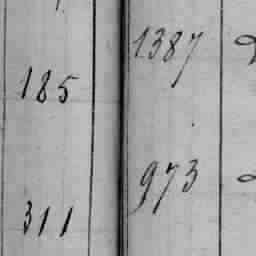 185 1387
311 973